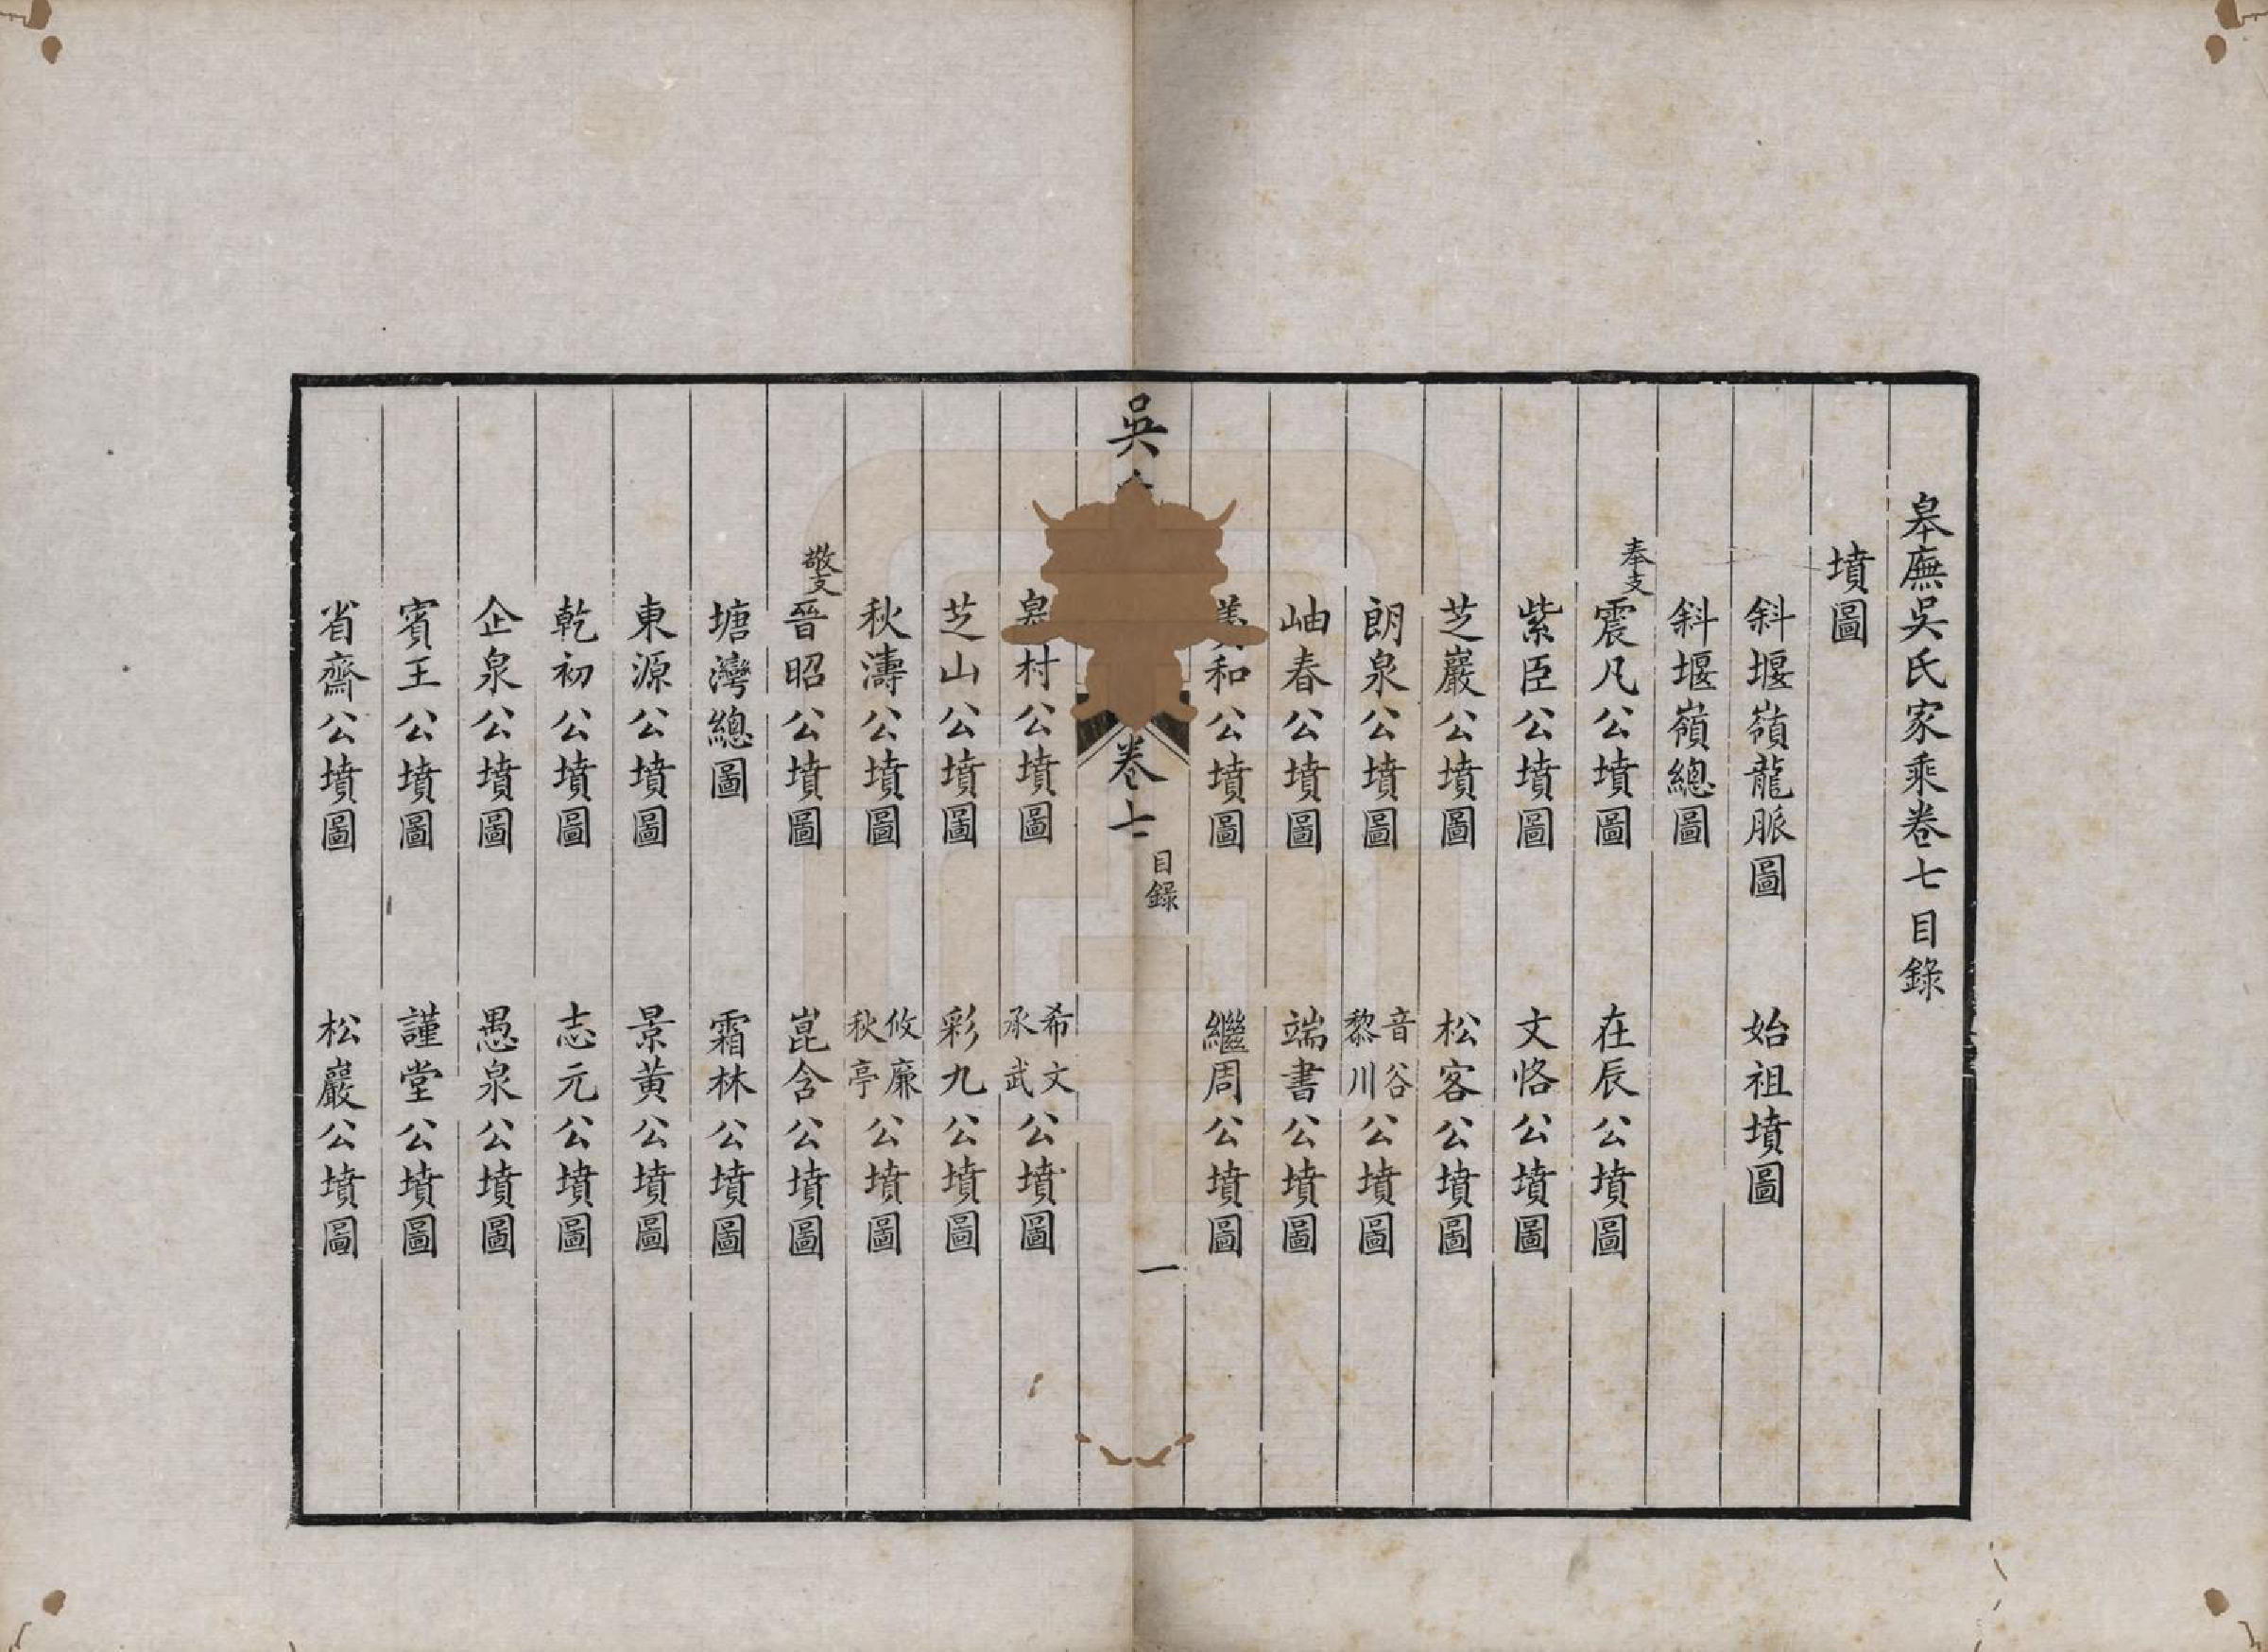 皋廡吳氏家乘卷七目錄
墳圖
斜堰嶺龍脈圖　始祖墳圖
斜堰嶺總圖
奉支　震凡公墳圖　在辰公墳圖
紫臣公墳圖　文恪公墳圖
芝巖公墳圖　松客公墳圖
朗泉公墳圖　音谷黎川公墳圖
岫春公墳圖　端書公墳圖
和公墳圖　繼周公墳圖
吳　卷七　目錄　一
村公墳圖　希文承武公墳圖
芝山公墳圖　彩九公墳圖
秋濤公墳圖　攸廉秋亭公墳圖
敬支　晉昭公墳圖　崑含公墳圖
塘灣總圖　霜林公墳圖
東源公墳圖　景黃公墳圖
乾初公墳圖　志元公墳圖
企泉公墳圖　愚泉公墳圖
賓王公墳圖　謹堂公墳圖
省齋公墳圖　松巖公墳圖